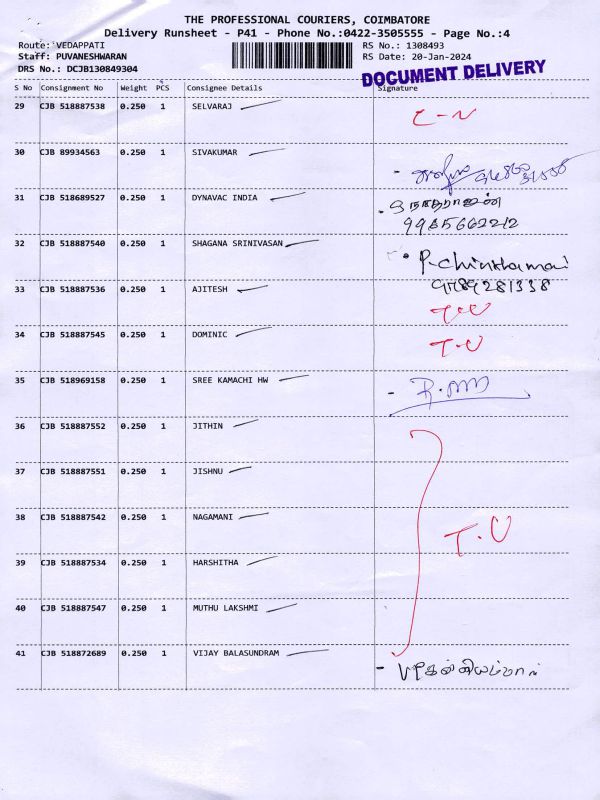 THE PROFESSIONAL COURIERS, COIMBATORE
Delivery Runsheet - P41 - Phone No.:0422-3505555 - Page No.:4
Route: VEDAPPATI
RS No.: 1308493
Staff: PUVANESHWARAN
RS Date: 20-Jan-2024
DRS No.: DCJB130849304
DOCUMENT DELIVERY
S No Consignment No Weight PCS Consignee Details Signature
29 CJB 518887538 0.250 1 SELVARAJ
30 CJB 89934563 0.250 1 SIVAKUMAR
31 CJB 518689527 0.250 1 DYNAVAC INDIA
9985662212
32 CJB 518887540 0.250 1 SHAGANA SRINIVASAN
P. Chinthamani
9789281338
33 CJB 518887536 0.250 1 AJITESH T.U
34 CJB 518887545 0.250 1 DOMINIC T.U
35 CJB 518969158 0.250 1 SREE KAMACHI HW
36 CJB 518887552 0.250 1 JITHIN
37 CJB 518887551 0.250 1 JISHNU
38 CJB 518887542 0.250 1 NAGAMANI T.U
39 CJB 518887534 0.250 1 HARSHITHA
40 CJB 518887547 0.250 1 MUTHU LAKSHMI
41 CJB 518872689 0.250 1 VIJAY BALASUNDRAM